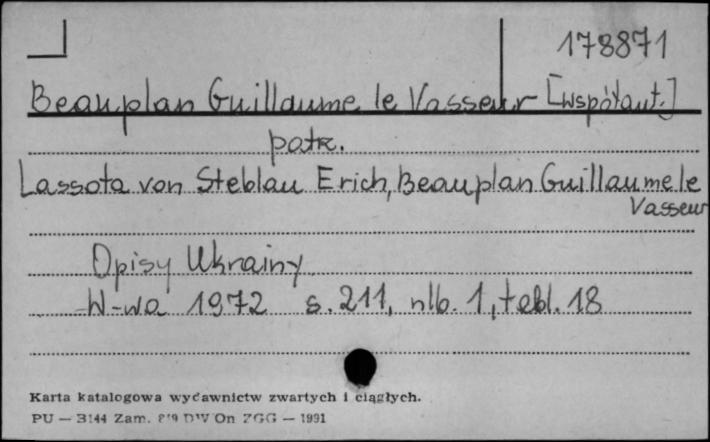 178871
Beauplan Guillaume le Vasseur [współaut.]
patrz.
Lassota von Steblau Erich, Beauplan Guillaume le
Vasseur
Opisy Ukrainy
W-wa 1972 s. 211, nlb. 1, tabl. 18
Karta katalogowa wydawnictw zwartych i ciągłych.
PU — B144 Zam. ZGG — 1991